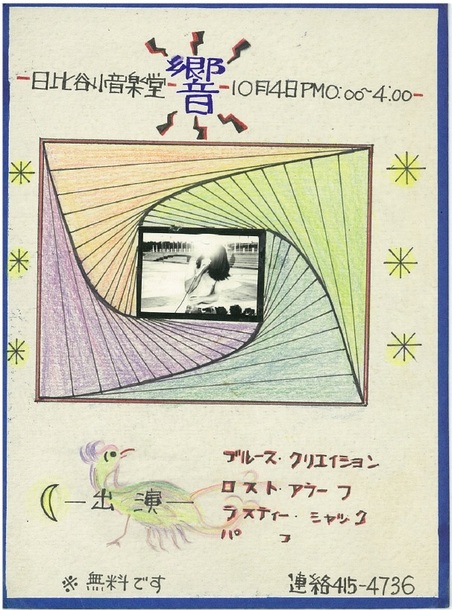 日比谷小音楽堂 響 10月4日PM0:00~4:00
ブルース・クリエイション
ロスト・アラーフ
出演
ラスティー・シャック
パフ
※無料です 連絡415-4736